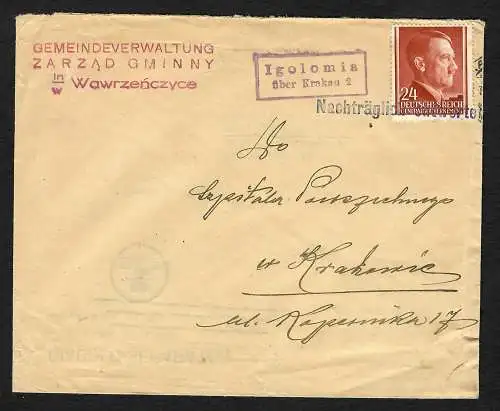 GEMEINDEVERWALTUNG
ZARZĄD GMINNY
in
w Wawrzeńczyce
Igolomia
über Krakau 2
24
DEUTSCHES REICH
GENERALGOUVERNEMENT
Nachträglich
Do
Szpitala Powszechnego
w Krakowie
ul. Kopernika 17